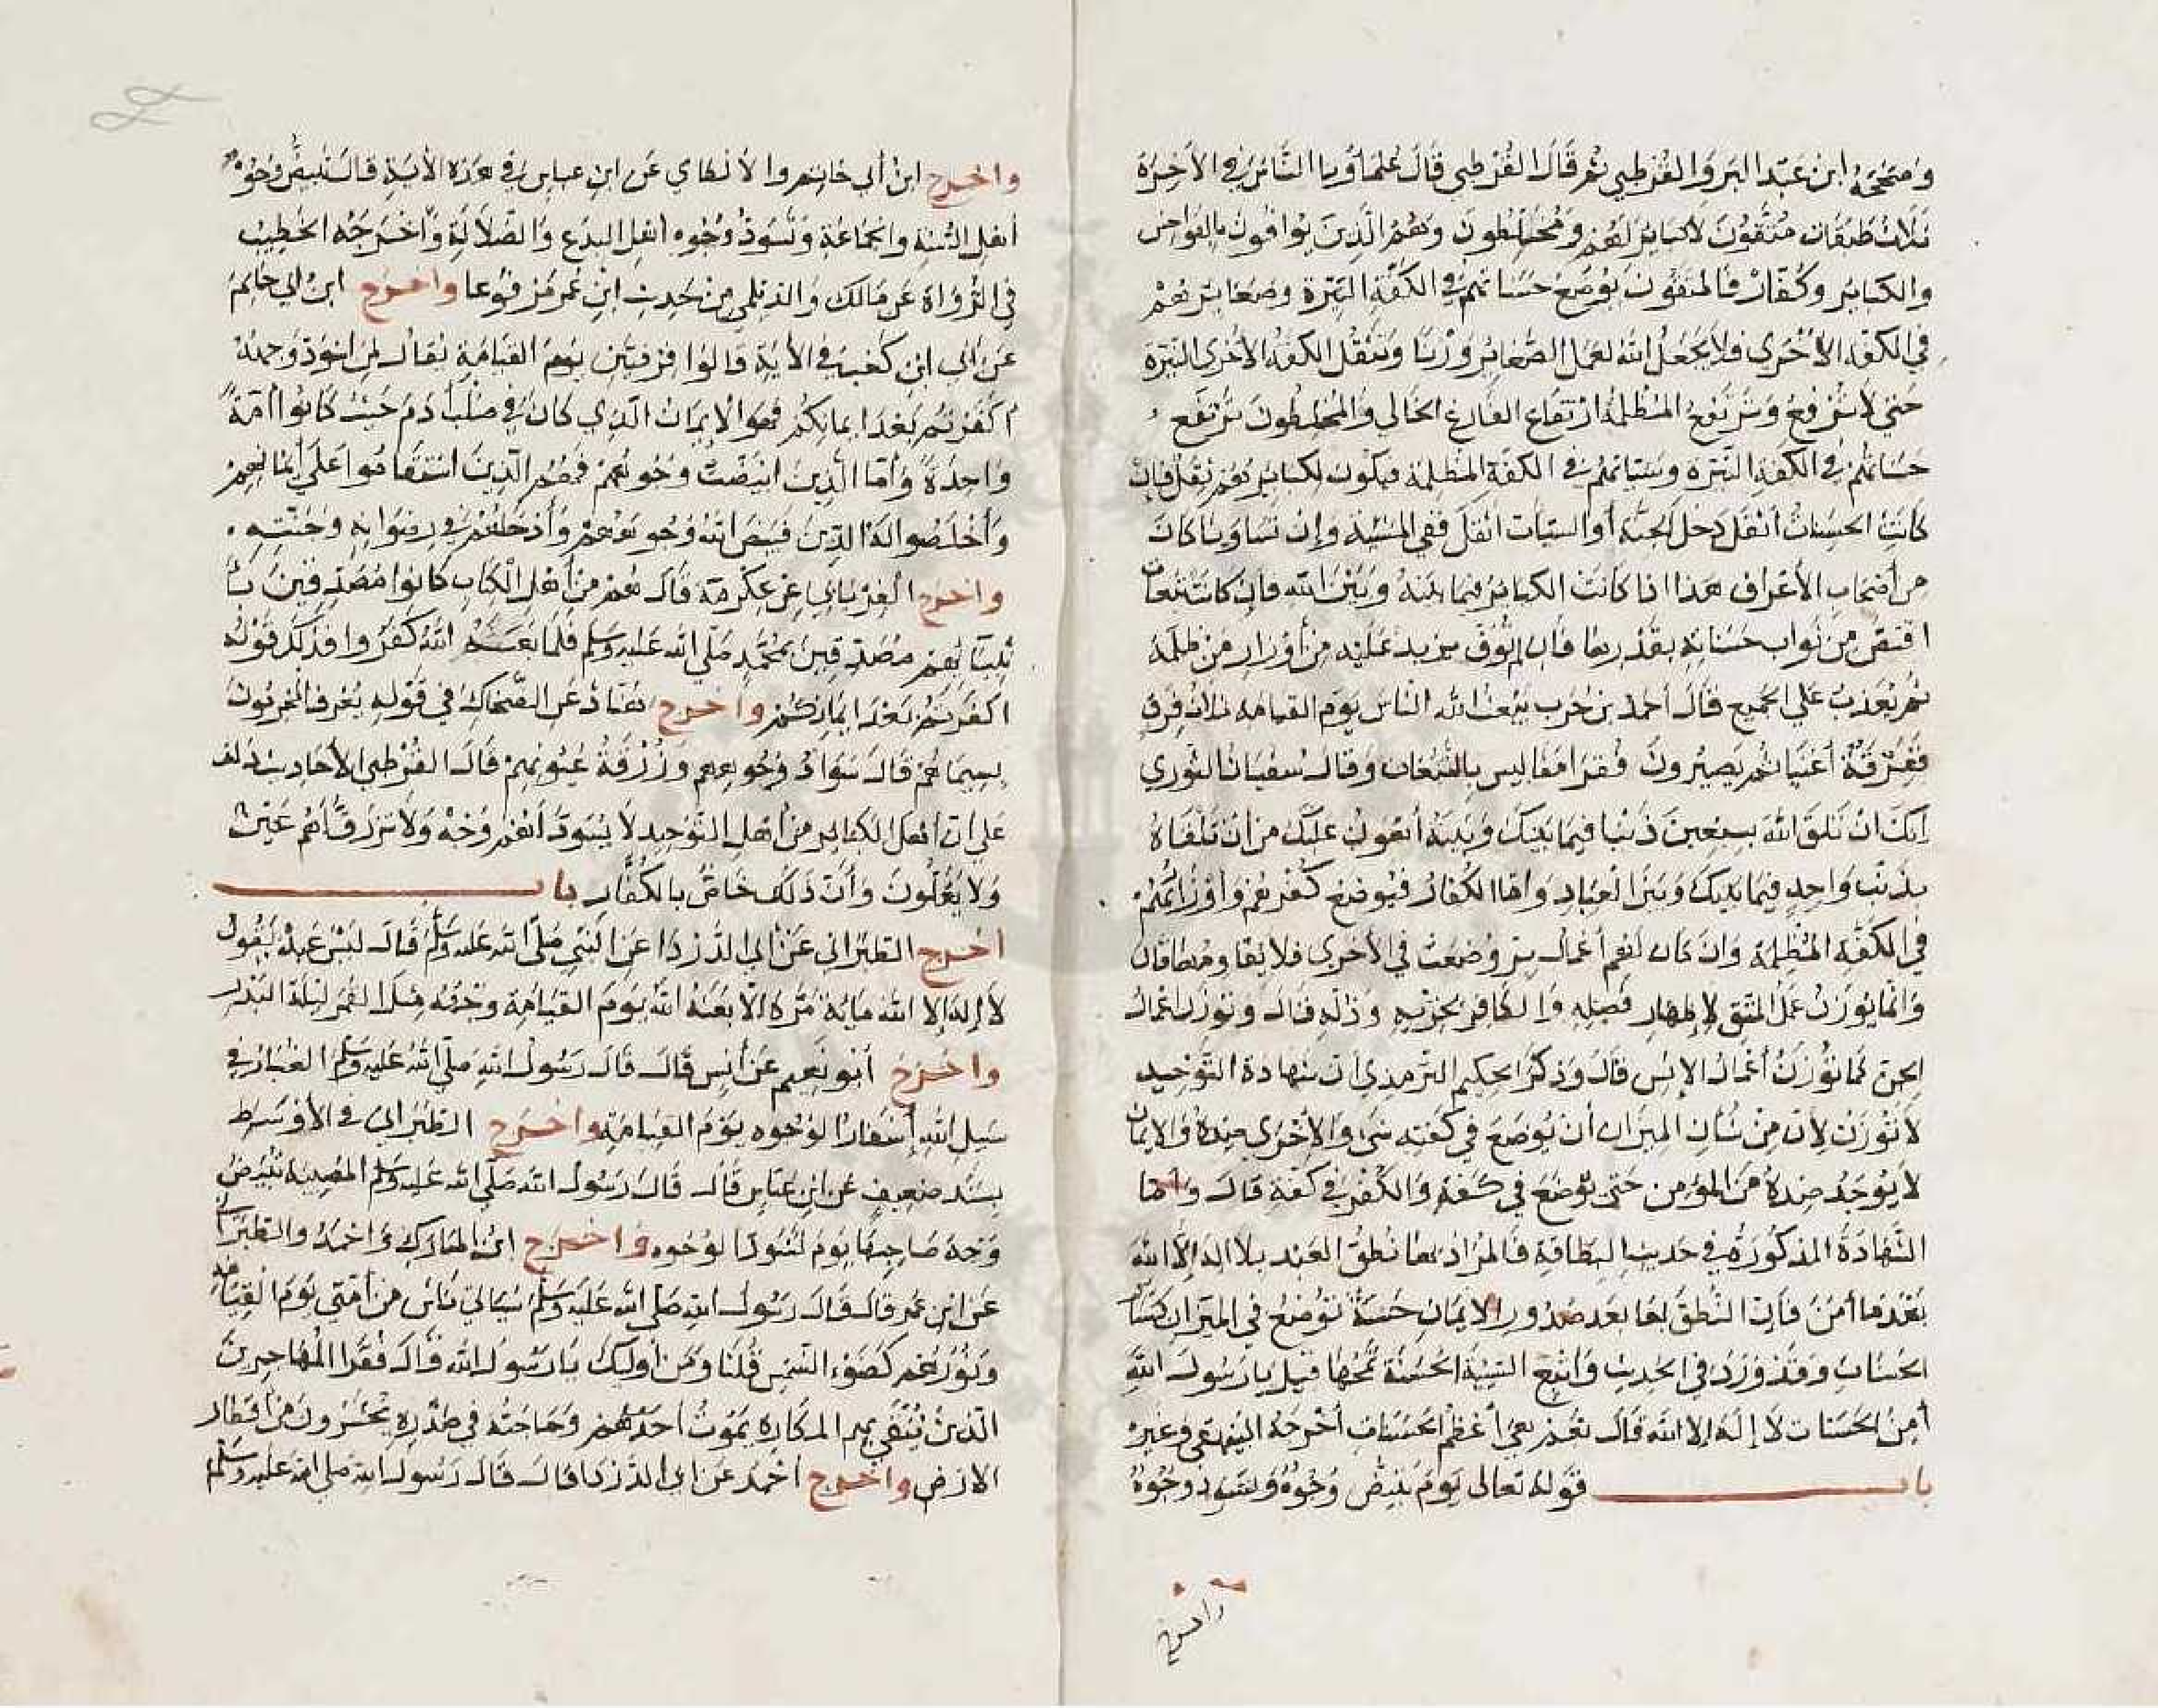 وصححه ابن عبد البر والقرطبي ثم قال القرطبي قال علماؤنا الناس في الآخرة
ثلاث طبقات متقون لا كبائر لهم ومخلطون وهم الذين يوافون بالفواحش
والكبائر وكفار فالمتقون يوضع حسناتهم في الكفة النيرة وصغائرهم
في الكفة الأخرى فلا يجعل الله لعمل الصغائر وزنا وتثقل الكفة الأخرى النيرة
حتى لا ترفع وترتفع المظلمة ارتفاع الفارغ الخالي والمخلطون ترتفع
حسناتهم في الكفة النيرة وسيآتهم في الكفة المظلمة فيكون لكبائرهم ثقل فإن
كانت الحسنات أثقل دخل الجنة أو السيآت اثقل ففي المشيئة وإن تساويا كان
من أصحاب الأعراف هذا اذا كانت الكبائر فيما بينه وبين الله فإن كانت تبعات
اقتص من ثواب حسناته بقدرها فان لم توف يزيد عليه من أوزار من ظلمه
ثم يعذب على الجميع قال احمد بن حرب يبعث الله الناس يوم القيامة ثلاث فرق
ففرقة أغنيا ثم يصيرون فقرا مفاليس بالتبعات وقال سفيان الثوري
إنك ان تلق الله بسبعين ذنبا فيما بينك وبينه أهون عليك من ان تلقاه
بذنب واحد فيما بينك وبين العباد واما الكفار فيوضع كفرهم وأوزارهم
في الكفة المظلمة وان كان لهم أعمال بر وضعت في الأخرى فلا يقاومها قال
وانما يوزن عمل المتق لإظهار فضله والكافر لخزيه وذله قال وتوزن اعمال
الجن كما توزن أعمال الإنس قال وذكر الحكيم الترمذي ان شهادة التوحيد
لا توزن لأن من شأن الميزان أن يوضع في كفته شئ والأخرى ضده والإيمان
لا يوجد ضده من المؤمن حتى يوضع في كفة والكفر في كفة قال واما
الشهادة المذكورة في حديث البطاقة فالمراد بها نطق العبد بلا اله الا الله
بعد ما أمن فان النطق بها بعد صدور الايمان حسنة توضع في الميزان كسائر
الحسنات وقد ورد في الحديث واتبع السيئة الحسنة تمحها قيل يا رسول الله
أمن الحسنات لا إله الا الله قال نعم هي أعظم الحسنات أخرجه البيهقي وغيره
باب قوله تعالى يوم تبيض وجوه وتسود وجوه
واخرج
واخرج ابن أبي حاتم والالكاي عن ابن عباس في هذه الأية قال تبيض وجوه
أهل السنة والجماعة وتسود وجوه أهل البدع والضلالة وأخرجه الخطيب
في الرواة عن مالك والديلمي من حديث ابن عمر مرفوعا واخرج ابن ابي حاتم
عن ابي ابن كعب في الأية قالوا فرقتين يوم القيامة يقال لمن اسود وجهه
أكفرتم بعد ايمانكم فهو الإيمان الذي كان في صلب أدم حيث كانوا أمة
واحدة وأما الذين ابيضت وجوههم فهم الذين استقاموا على أيمانهم
وأخلصوا له الدين فبيض الله وجوههم وأدخلهم في رضوانه وجنته
واخرج الفريابي عن عكرمة قال هم من أهل الكتاب كانوا مصدقين
بأنبيائهم مصدقين بمحمد صلى الله عليه وسلم فلما بعثه الله كفروا فذلك قوله
اكفرتم بعد ايمانكم واخرج هناد عن الضحاك في قوله يعرف المجرمون
بسيماهم قال سواد وجوههم وزرقة عيونهم قال القرطبي الأحاديث تدل
على ان أهل الكبائر من أهل التوحيد لا يسود لهم وجه ولا تزرق لهم عين
ولا يغلون وأن ذلك خاص بالكفار باب
أخرج الطبراني عن أبي الدرداء عن النبي صلى الله عليه وسلم قال ليس عبد يقول
لا إله إلا الله مائة مرة الا بعثه الله يوم القيامة وجهه مثل القمر ليلة البدر
واخرج أبو نعيم عن أنس قال قال رسول الله صلى الله عليه وسلم الغبار في
سبيل الله إسفار الوجوه يوم القيامة واخرج الطبراني في الأوسط
بسند ضعيف عن ابن عباس قال قال رسول الله صلى الله عليه وسلم المصيبة تبيض
وجه صاحبها يوم تسود الوجوه واخرج ابن المبارك واحمد والطبراني
عن ابن عمر قال قال رسول الله صلى الله عليه وسلم سيأتي ناس من أمتي يوم القيامة
ونورهم كضوء الشمس قلنا ومن أوليك يا رسول الله قال فقرا المهاجرين
الذين يتقي بهم المكاره يموت أحدهم وحاجته في صدره يحشرون من أقطار
الارض واخرج أحمد عن ابي الدرداء قال قال رسول الله صلى الله عليه وسلم